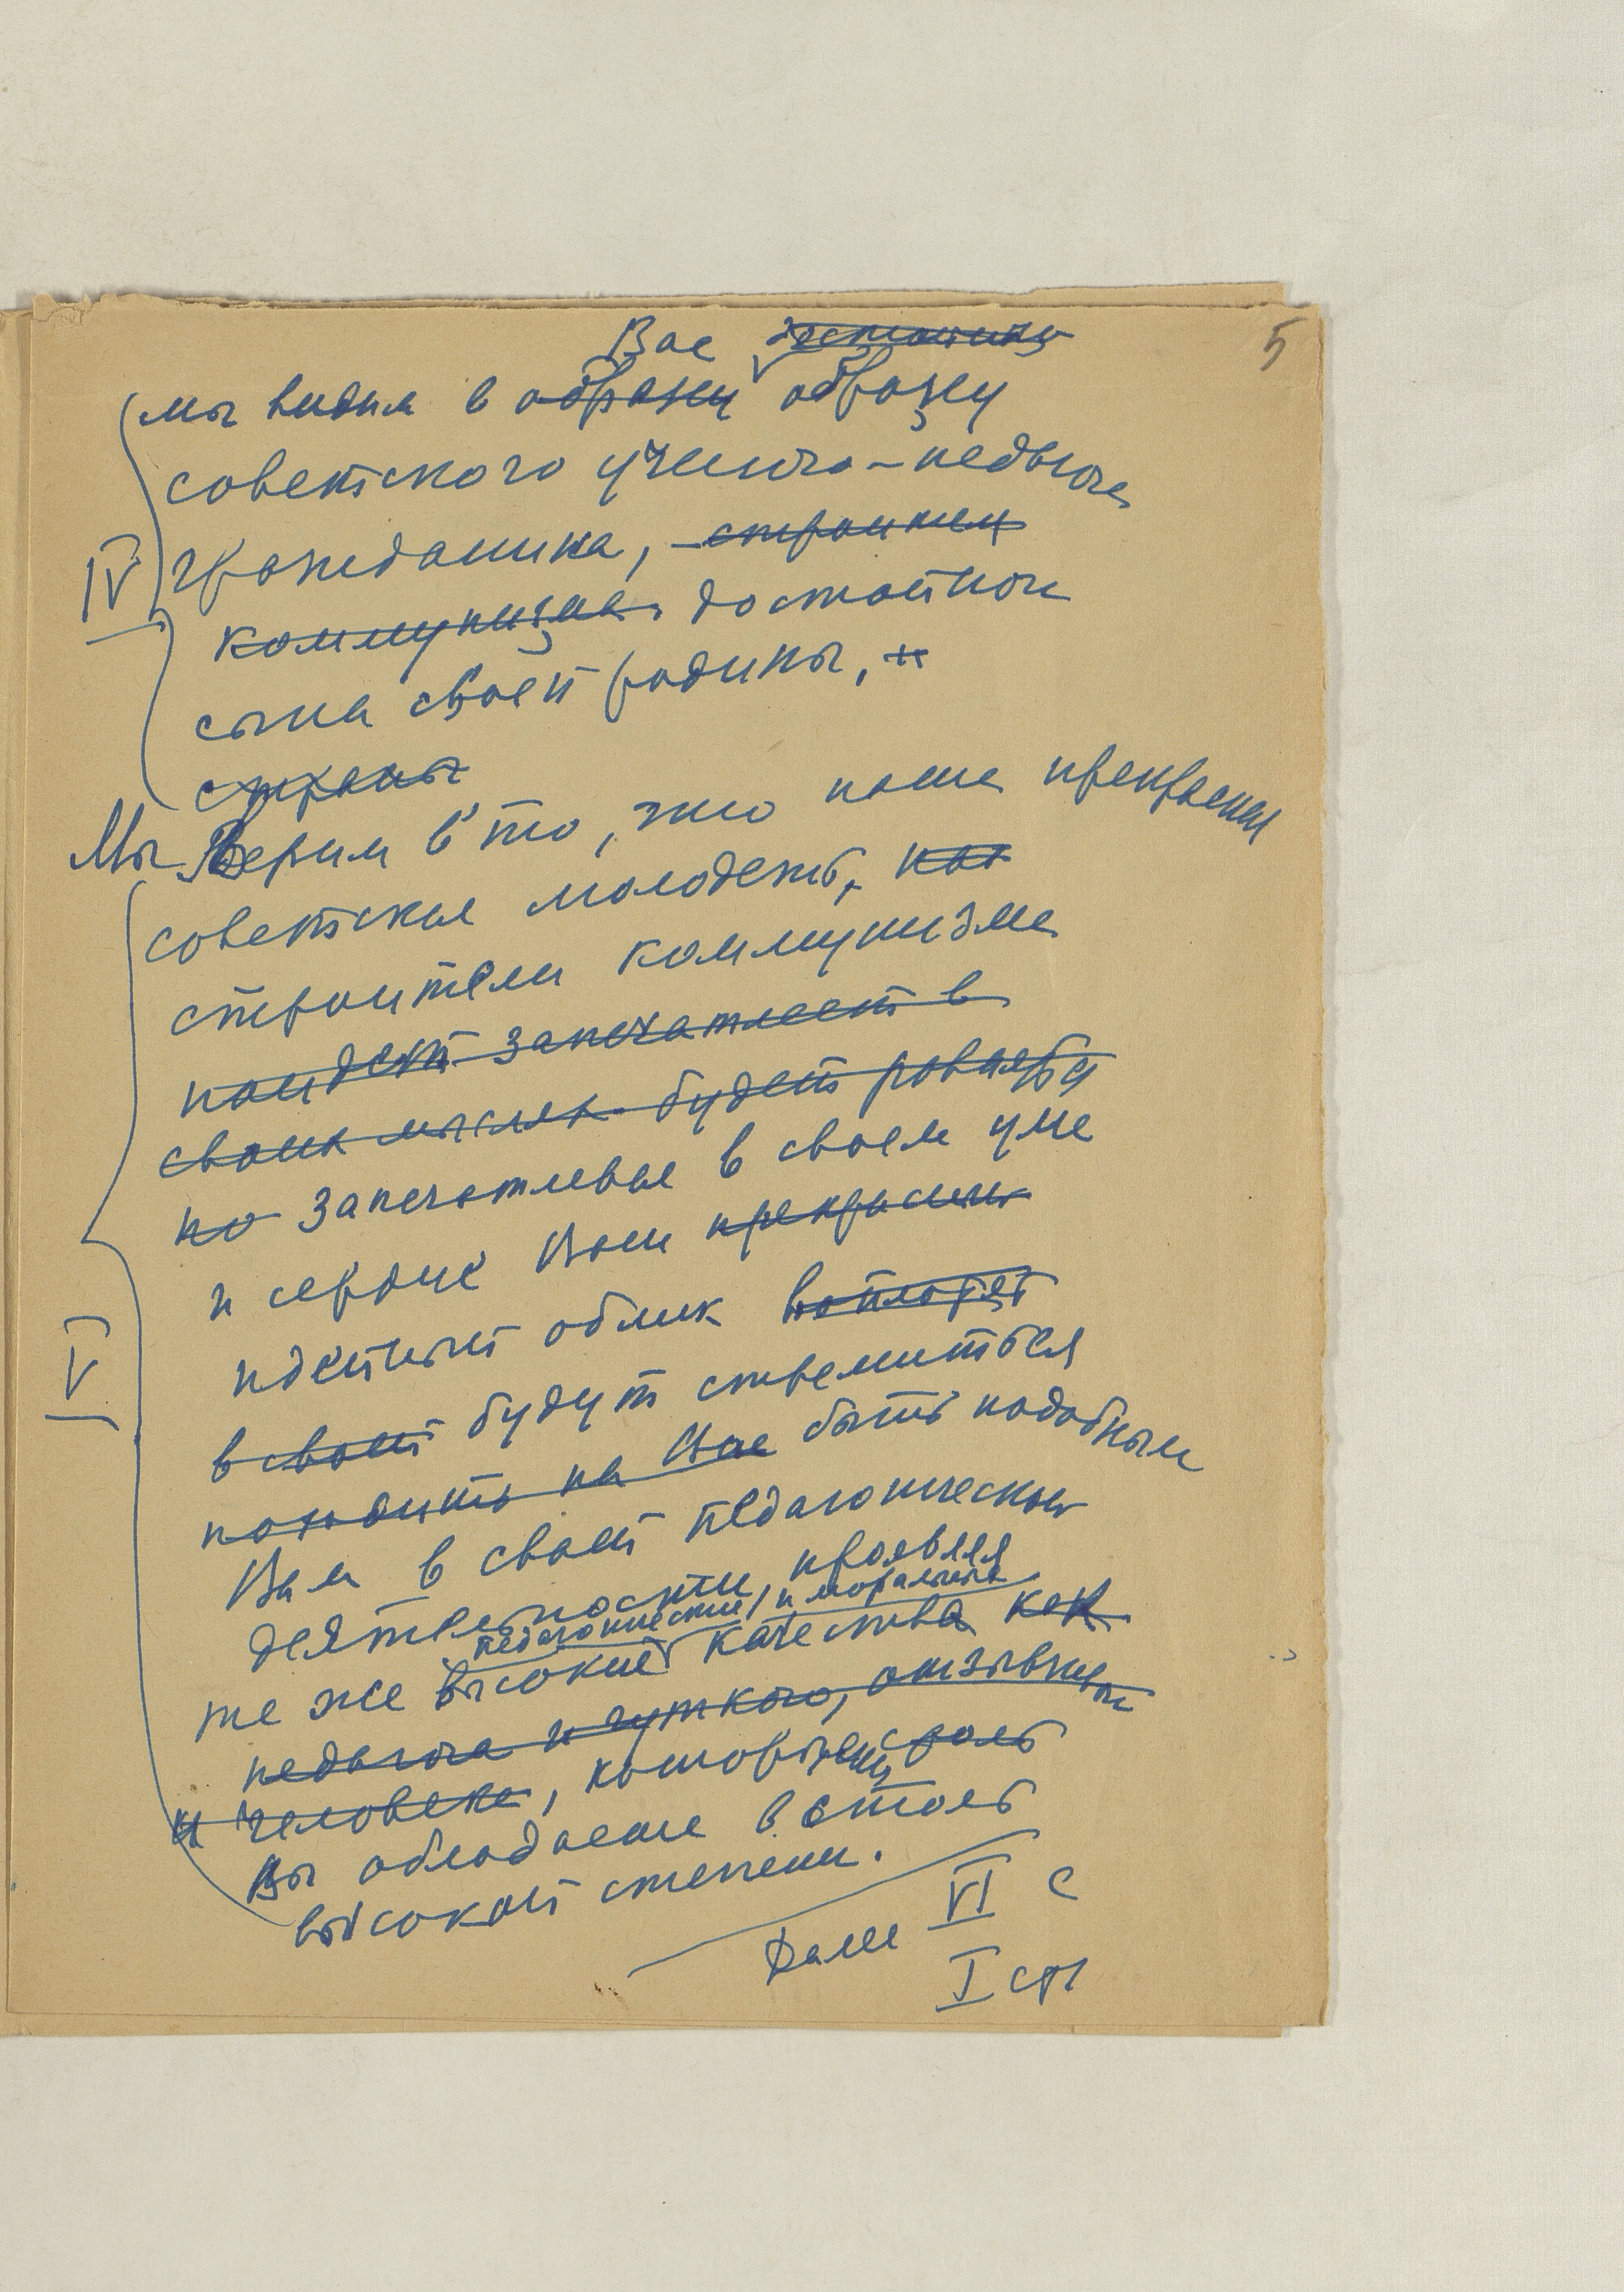 5
Вас достойны
мы видим в образец образец
советского ученого-педагога
IV гражданина, строителя
коммунизма, достойного
сына своей родины, и
страны
Мы Верим в то, что наша прекрасная
советская молодежь, как
строители коммунизма
запечатлеет в
своих мыслях будет
но запечатлевая в своем уме
и сердце Ваш прекрасный
V идейный облик воплотят
в своей будут стремиться
походить на Вас быть подобным
Вам в своей педагогической
деятельности, проявляя
педагогические и моральные
те же высокие качества как
педагога и чуткого, отзывчивого
и человека, которыми
Вы обладаете в столь
высокой степени.
Далее VI с
I стр